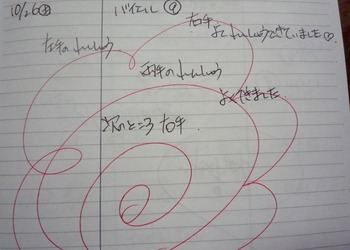 10/26㊏ バイエル ⑨
右手
よくれんしゅうできていました♡
左手のれんしゅう
両手のれんしゅう
よくできました
次のところ右手.